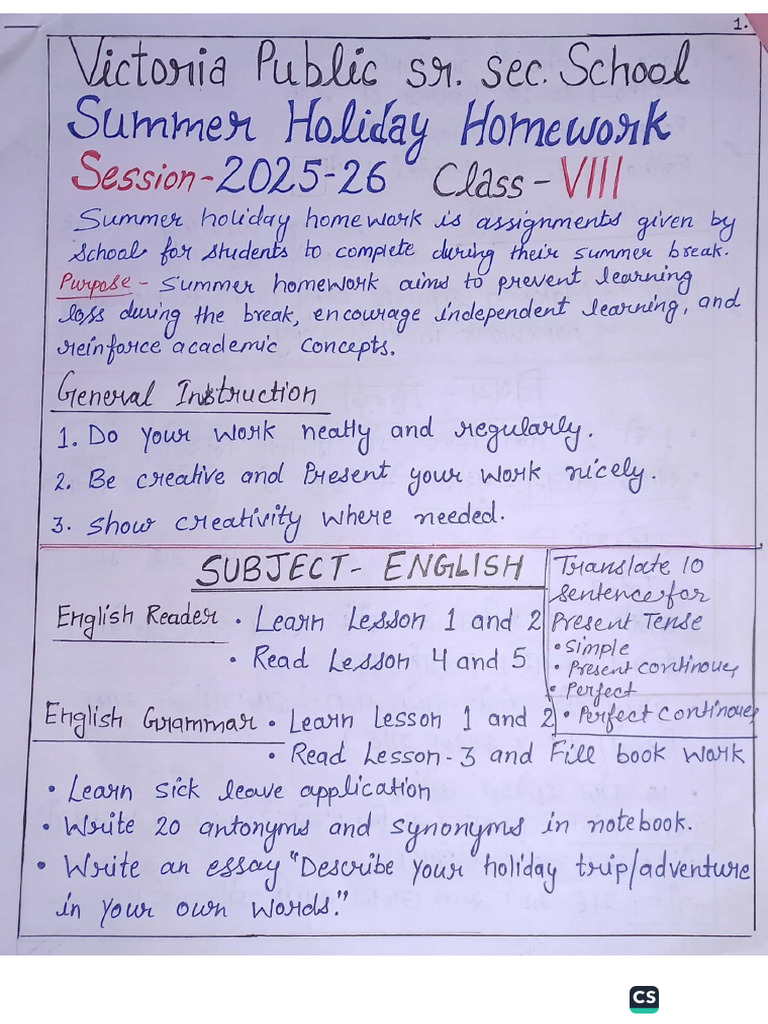 1.
Victoria Public sr. sec. School
Summer Holiday Homework
Session-2025-26 Class-VIII
Summer holiday homework is assignments given by
School for students to complete during their summer break.
Purpose - Summer homework aims to prevent learning
loss during the break, encourage independent learning, and
reinforce academic concepts.
General Instruction
1. Do your work neatly and regularly.
2. Be creative and Present your work nicely.
3. Show creativity where needed.
SUBJECT- ENGLISH
Translate 10
sentence for
Present Tense
• Simple
• Present continoues
• Perfect
• Perfect continoues
English Reader • Learn Lesson 1 and 2
• Read Lesson 4 and 5
English Grammar • Learn Lesson 1 and 2
• Read Lesson-3 and Fill book work
• Learn sick leave application
• Write 20 antonyms and synonyms in notebook.
• Write an essay "Describe your holiday trip/adventure
in your own words."
CS